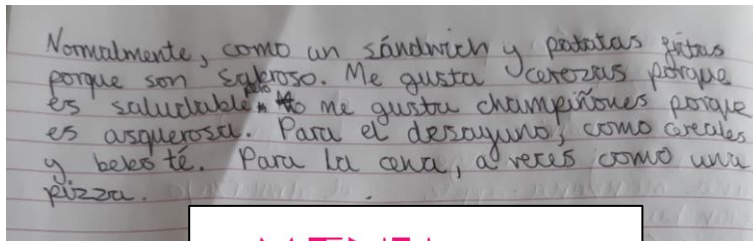 Normalmente, como un sándwich y patatas fritas
porque son sabroso. Me gusta cerezas porque
es saludable no me gusta champiñones porque
es asquerosa. Para el desayuno, como cereales
y bebo té. Para la cena, a veces como una
pizza.